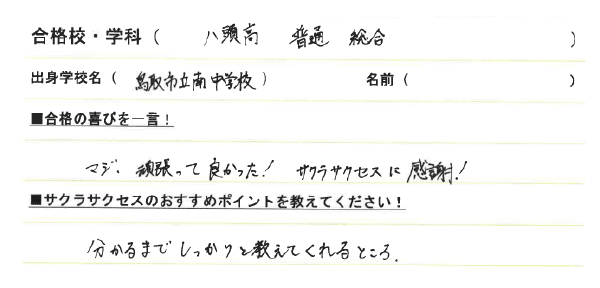 合格校・学科（ 八頭高 普通 総合 ）
出身学校名（ 鳥取市立南中学校 ） 名前（ ）
■合格の喜びを一言！
マジ、頑張って良かった！ サクラサクセスに感謝！
■サクラサクセスのおすすめポイントを教えてください！
分かるまでしっかりと教えてくれるところ.